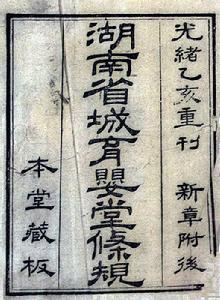 光緒乙亥重刊 新章附後
湖南省城育嬰堂條規
本堂藏板